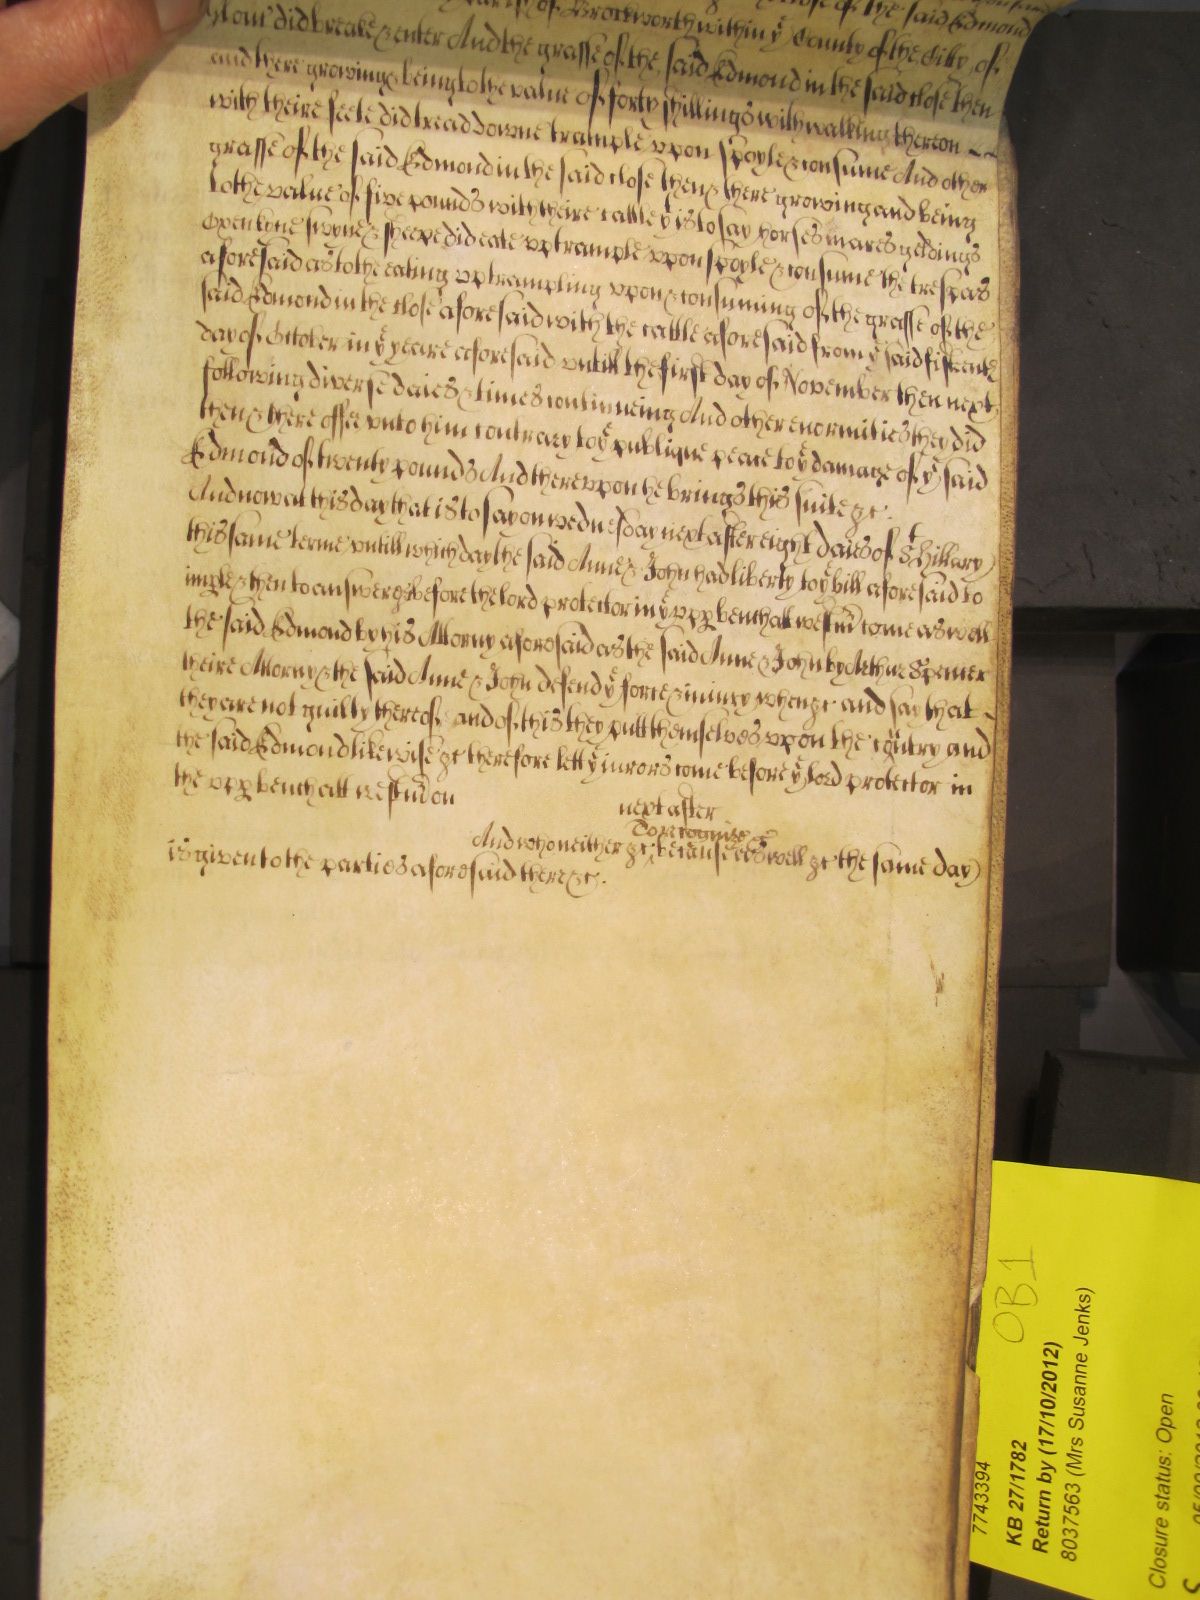 parish of Brockworth within yͤ County of the Citty of
close of the said Edmond
Glouc did breake & enter And the grasse of the said Edmond in the said close then
and there growing & being to the value of forty shillings with walking thereon
with theire feete did tread downe trample upon spoyle & consume And other
grasse of the said Edmond in the said close then & there growing and being
to the value of five pounds with theire cattle yͭ is to say horses mares geldings
Oxen kyne swyne & sheepe did eate up trample upon spoyle & consume the trespas
aforesaid as to the eating up trampling upon & consuming of the grasse of the
said Edmond in the close aforesaid with the cattle aforesaid from yͤ said fifteenth
day of October in yͤ yeare aforesaid untill the first day of November then next
following diverse daies & times continueing And other enormities they did
then & there offer unto him contrary to yͤ publique peace to yͤ damage of yͤ said
Edmond of twenty pounds And thereupon he brings this suite &c.
And now at this day that is to say on wednesday next after eight daies of St Hillary
this same terme untill which day the said Anne & John had liberty to yͤ bill aforesaid to
imple & then to answere &c before the lord protector in yͤ upp bench att westm come as well
the said Edmond by his Attorny aforesaid as the said Anne & John by Arthur Spencer
theire Attorny & the said Anne & John defend yͤ force & iniury when &c and say that
they are not guilty thereof and of this they putt themselves upon the cuntry and
the said Edmond likewise &c therefore lett yͤ iurors come before yͤ lord protector in
the upp bench att westm on
next after
To recognise &c
And who neither &c because as well &c the same day
is given to the parties aforesaid there &c.
OB1
7743394
KB 27/1782
Return by (17/10/2012)
8037563 (Mrs Susanne Jenks)
Closure status: Open